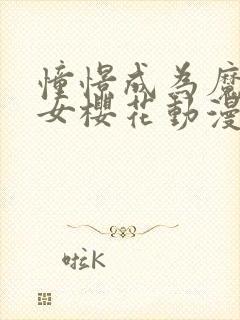 憧憬成為魔
女櫻花動漫
啦K